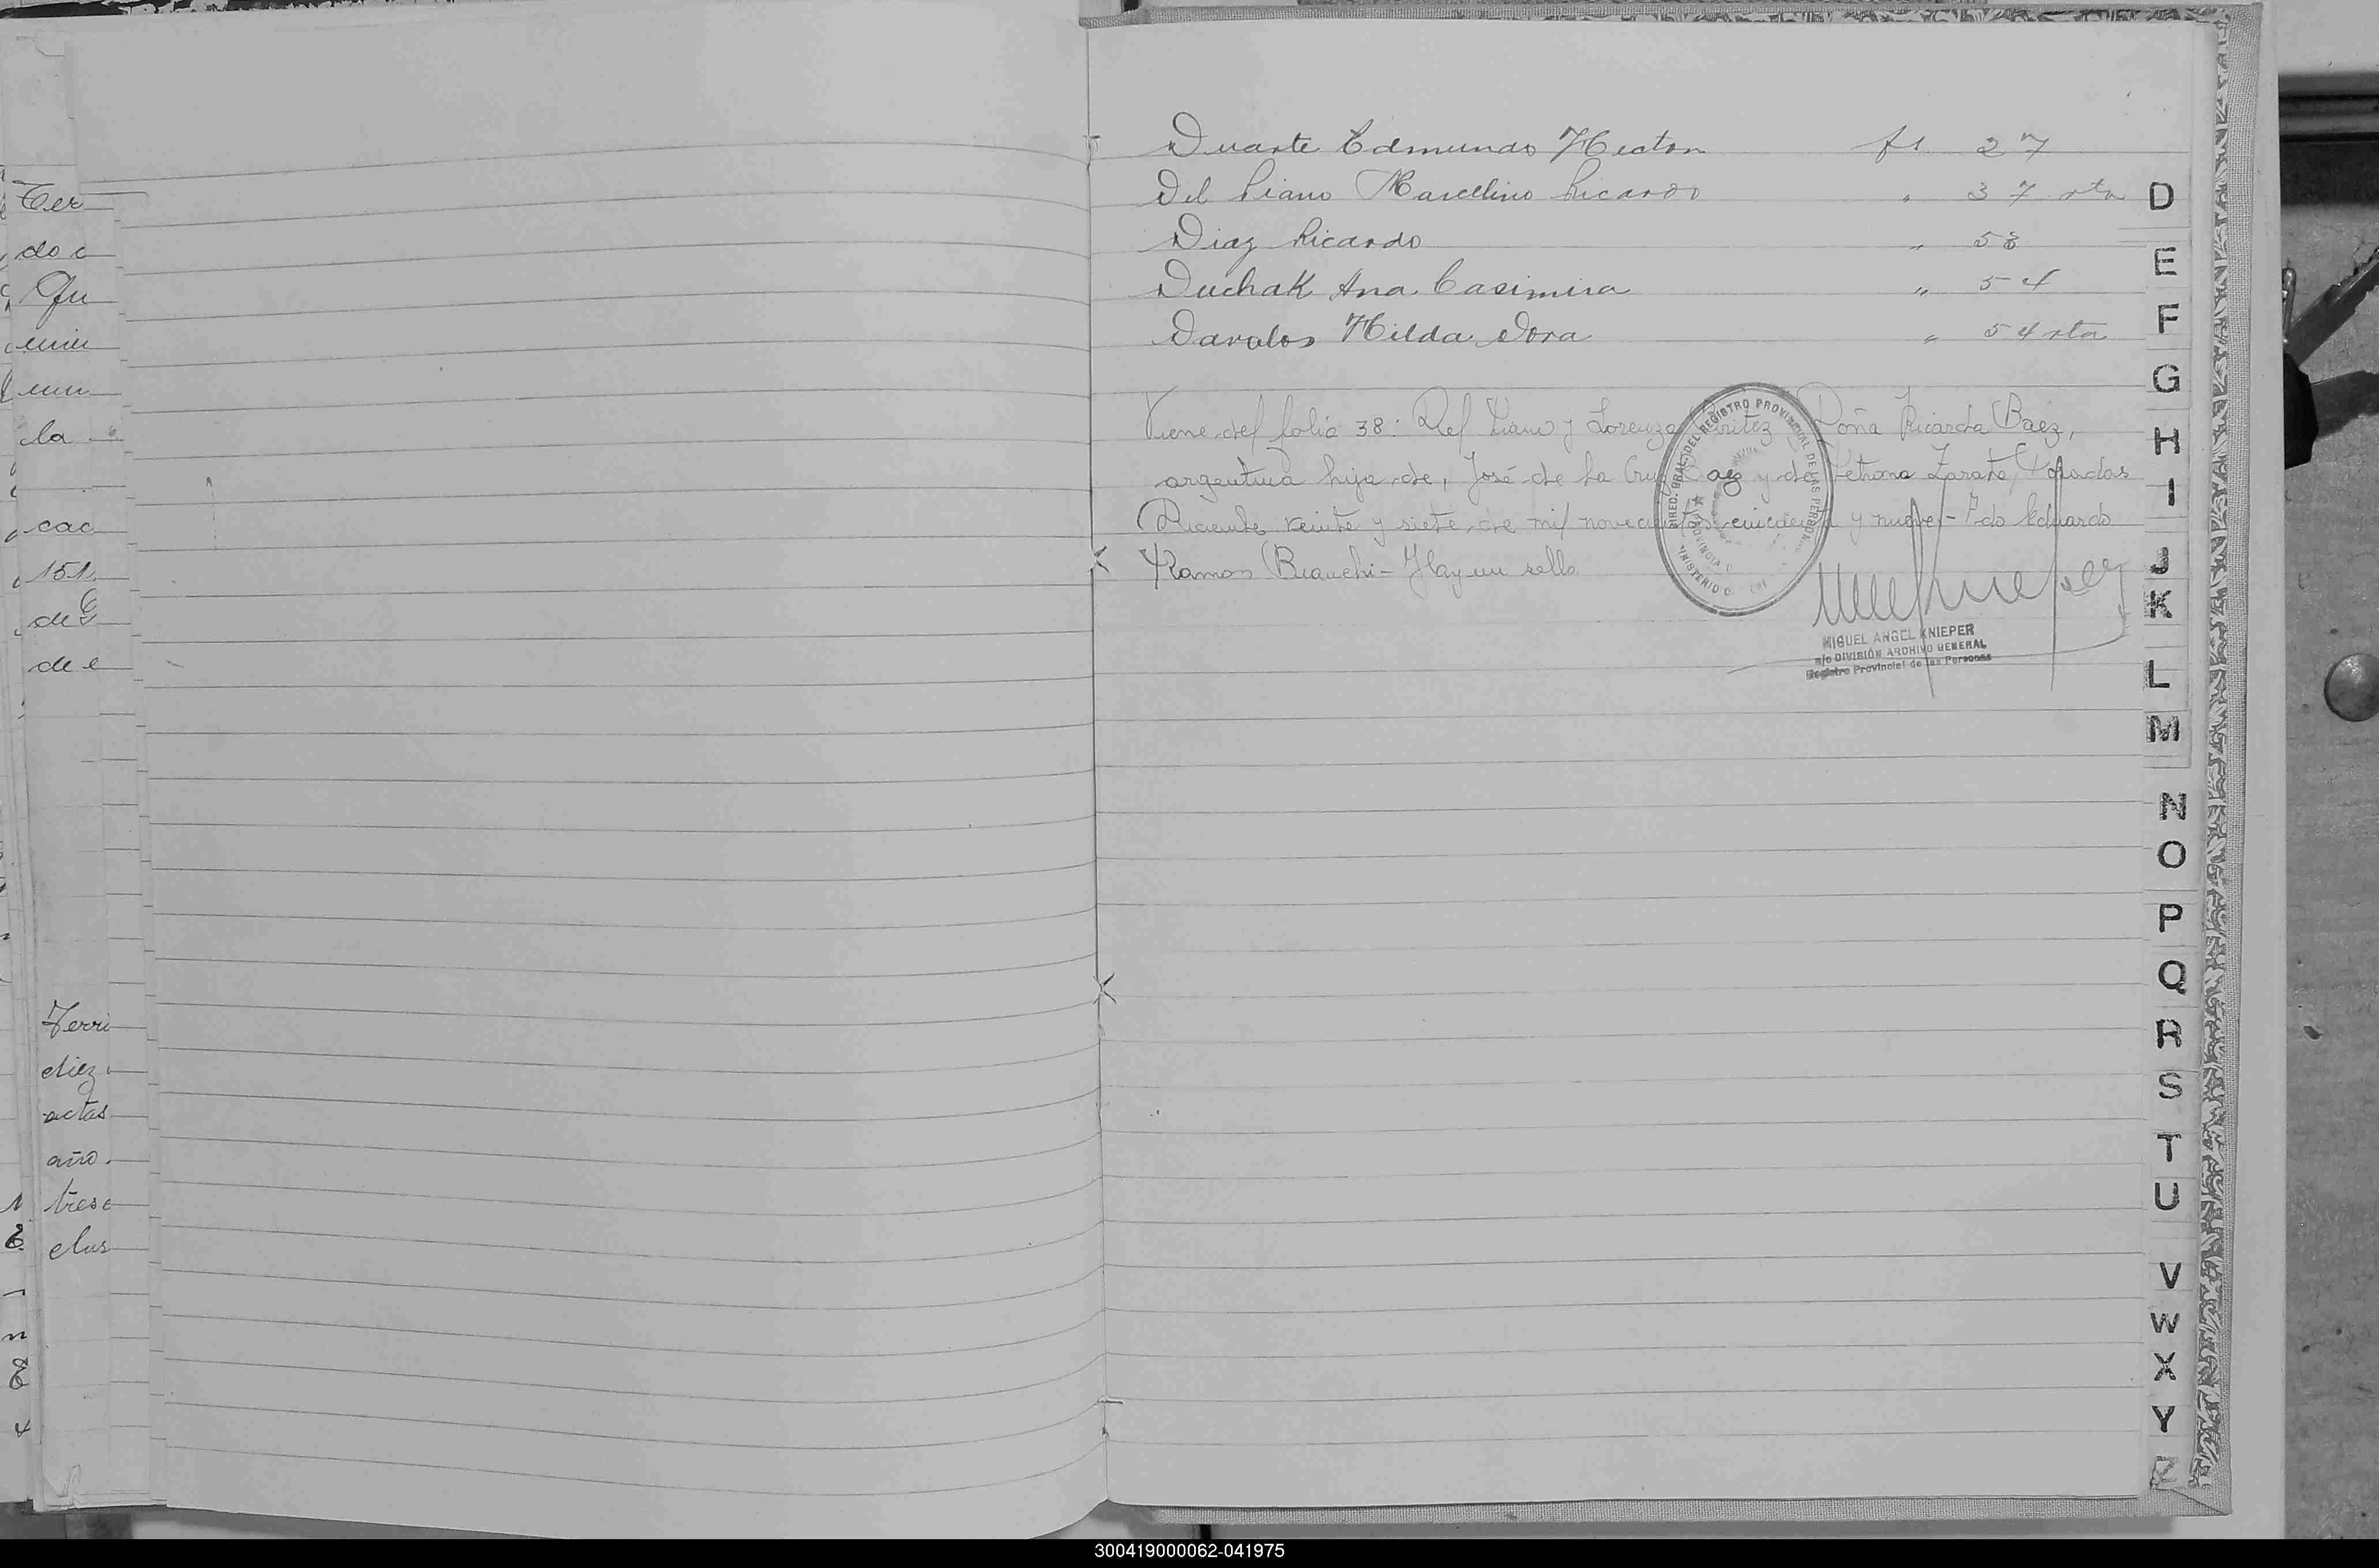 Duarte Edmundo Hector fs. 27
Del Piano Marcelino Ricardo " 37 vta
Diaz Ricardo " 53
Duchak Ana Casimira " 54
Davalos Hilda Dora " 54 vta
Viene del folio 38: Del Piano y Lorenza Doña Ricarda Baez,
argentina hija de, José de la Cruz Baez y de Petrona Zarate, Posadas
Diciembre veinte y siete de mil novecientos cincuenta y nueve - Fdo Eduardo
Ramos Bianchi - Hay un sello
DIREC. GRAL. DEL REGISTRO PROVINCIAL DE LAS PERSONAS
MINISTERIO D
MIGUEL ANGEL KNIEPER
a/c DIVISIÓN ARCHIVO GENERAL
Registro Provincial de las Personas
D
E
F
G
H
I
J
K
L
M
N
O
P
Q
R
S
T
U
V
W
X
Y
Z
Ter
do c
Qu
la
cac
151
de
de e
Terri
diez
actas
año
trese
300419000062-041975